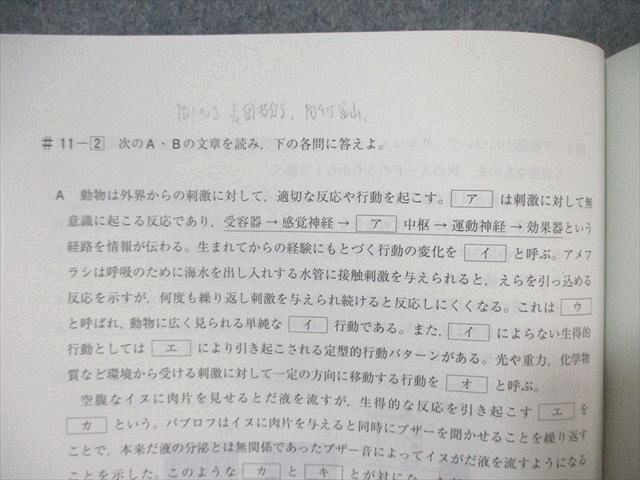 #11－2 次のA・Bの文章を読み，下の各問に答えよ。
A 動物は外界からの刺激に対して，適切な反応や行動を起こす。 ア は刺激に対して無
意識に起こる反応であり，受容器→感覚神経→ ア 中枢→運動神経→効果器という
経路を情報が伝わる。生まれてからの経験にもとづく行動の変化を イ と呼ぶ。アメフ
ラシは呼吸のために海水を出し入れする水管に接触刺激を与えられると，えらを引っ込める
反応を示すが，何度も繰り返し刺激を与えられ続けると反応しにくくなる。これは ウ
と呼ばれ，動物に広く見られる単純な イ 行動である。また， イ によらない生得的
行動としては エ により引き起こされる定型的行動パターンがある。光や重力，化学物
質など環境から受ける刺激に対して一定の方向に移動する行動を オ と呼ぶ。
空腹なイヌに肉片を見せるとだ液を流すが，生得的な反応を引き起こす エ を
カ という。パブロフはイヌに肉片を与えると同時にブザーを聞かせることを繰り返す
ことで，本来だ液の分泌とは無関係であったブザー音によってイヌがだ液を流すようになる
ことを示した。このような カ と キ とが対になっ